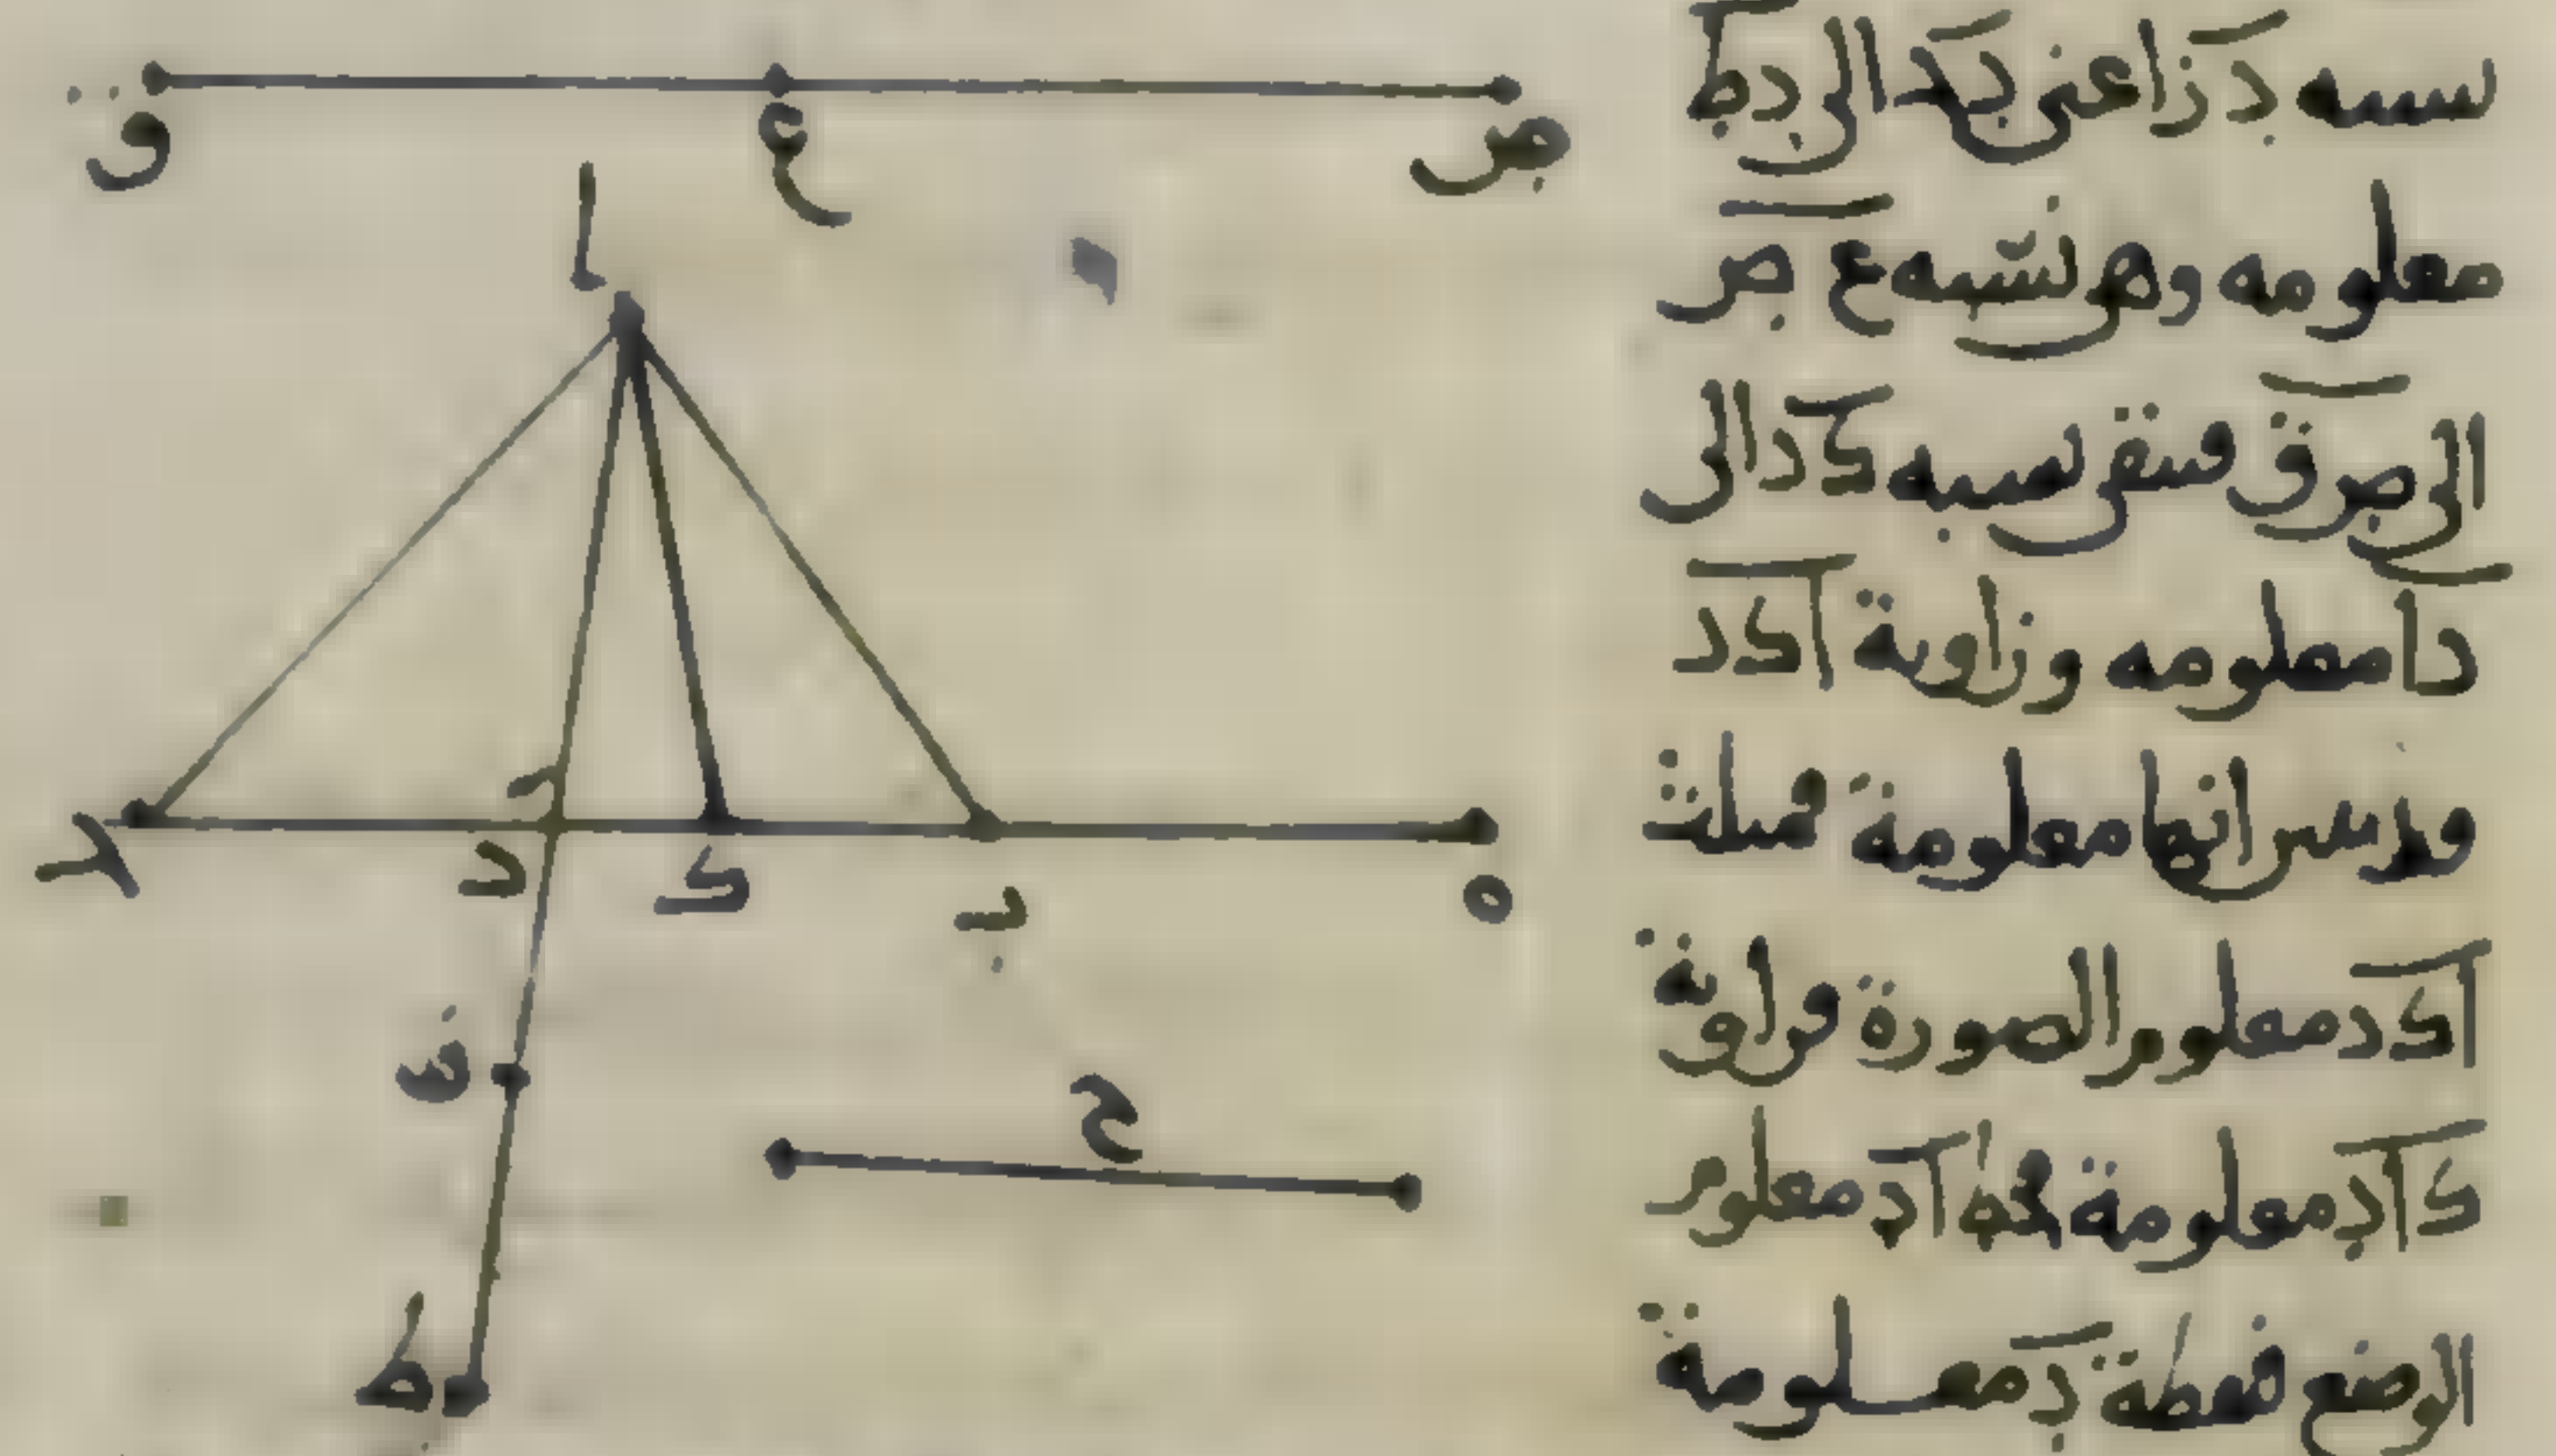 ق ع ص
ا
ج د ك ب ه
ف
ح
ط
نسبه د ز اعنى بكد الى دط
معلومه وهى نسبه ع ص
الى ص ق فتبقى نسبه كد الى
دا معلومه وزاوية اكد
وقد تبين انها معلومة فمثلث
اكد معلوم الصورة فزاوية
كاد معلومة فخط اد معلوم
الوضع فنقطة د معلومة